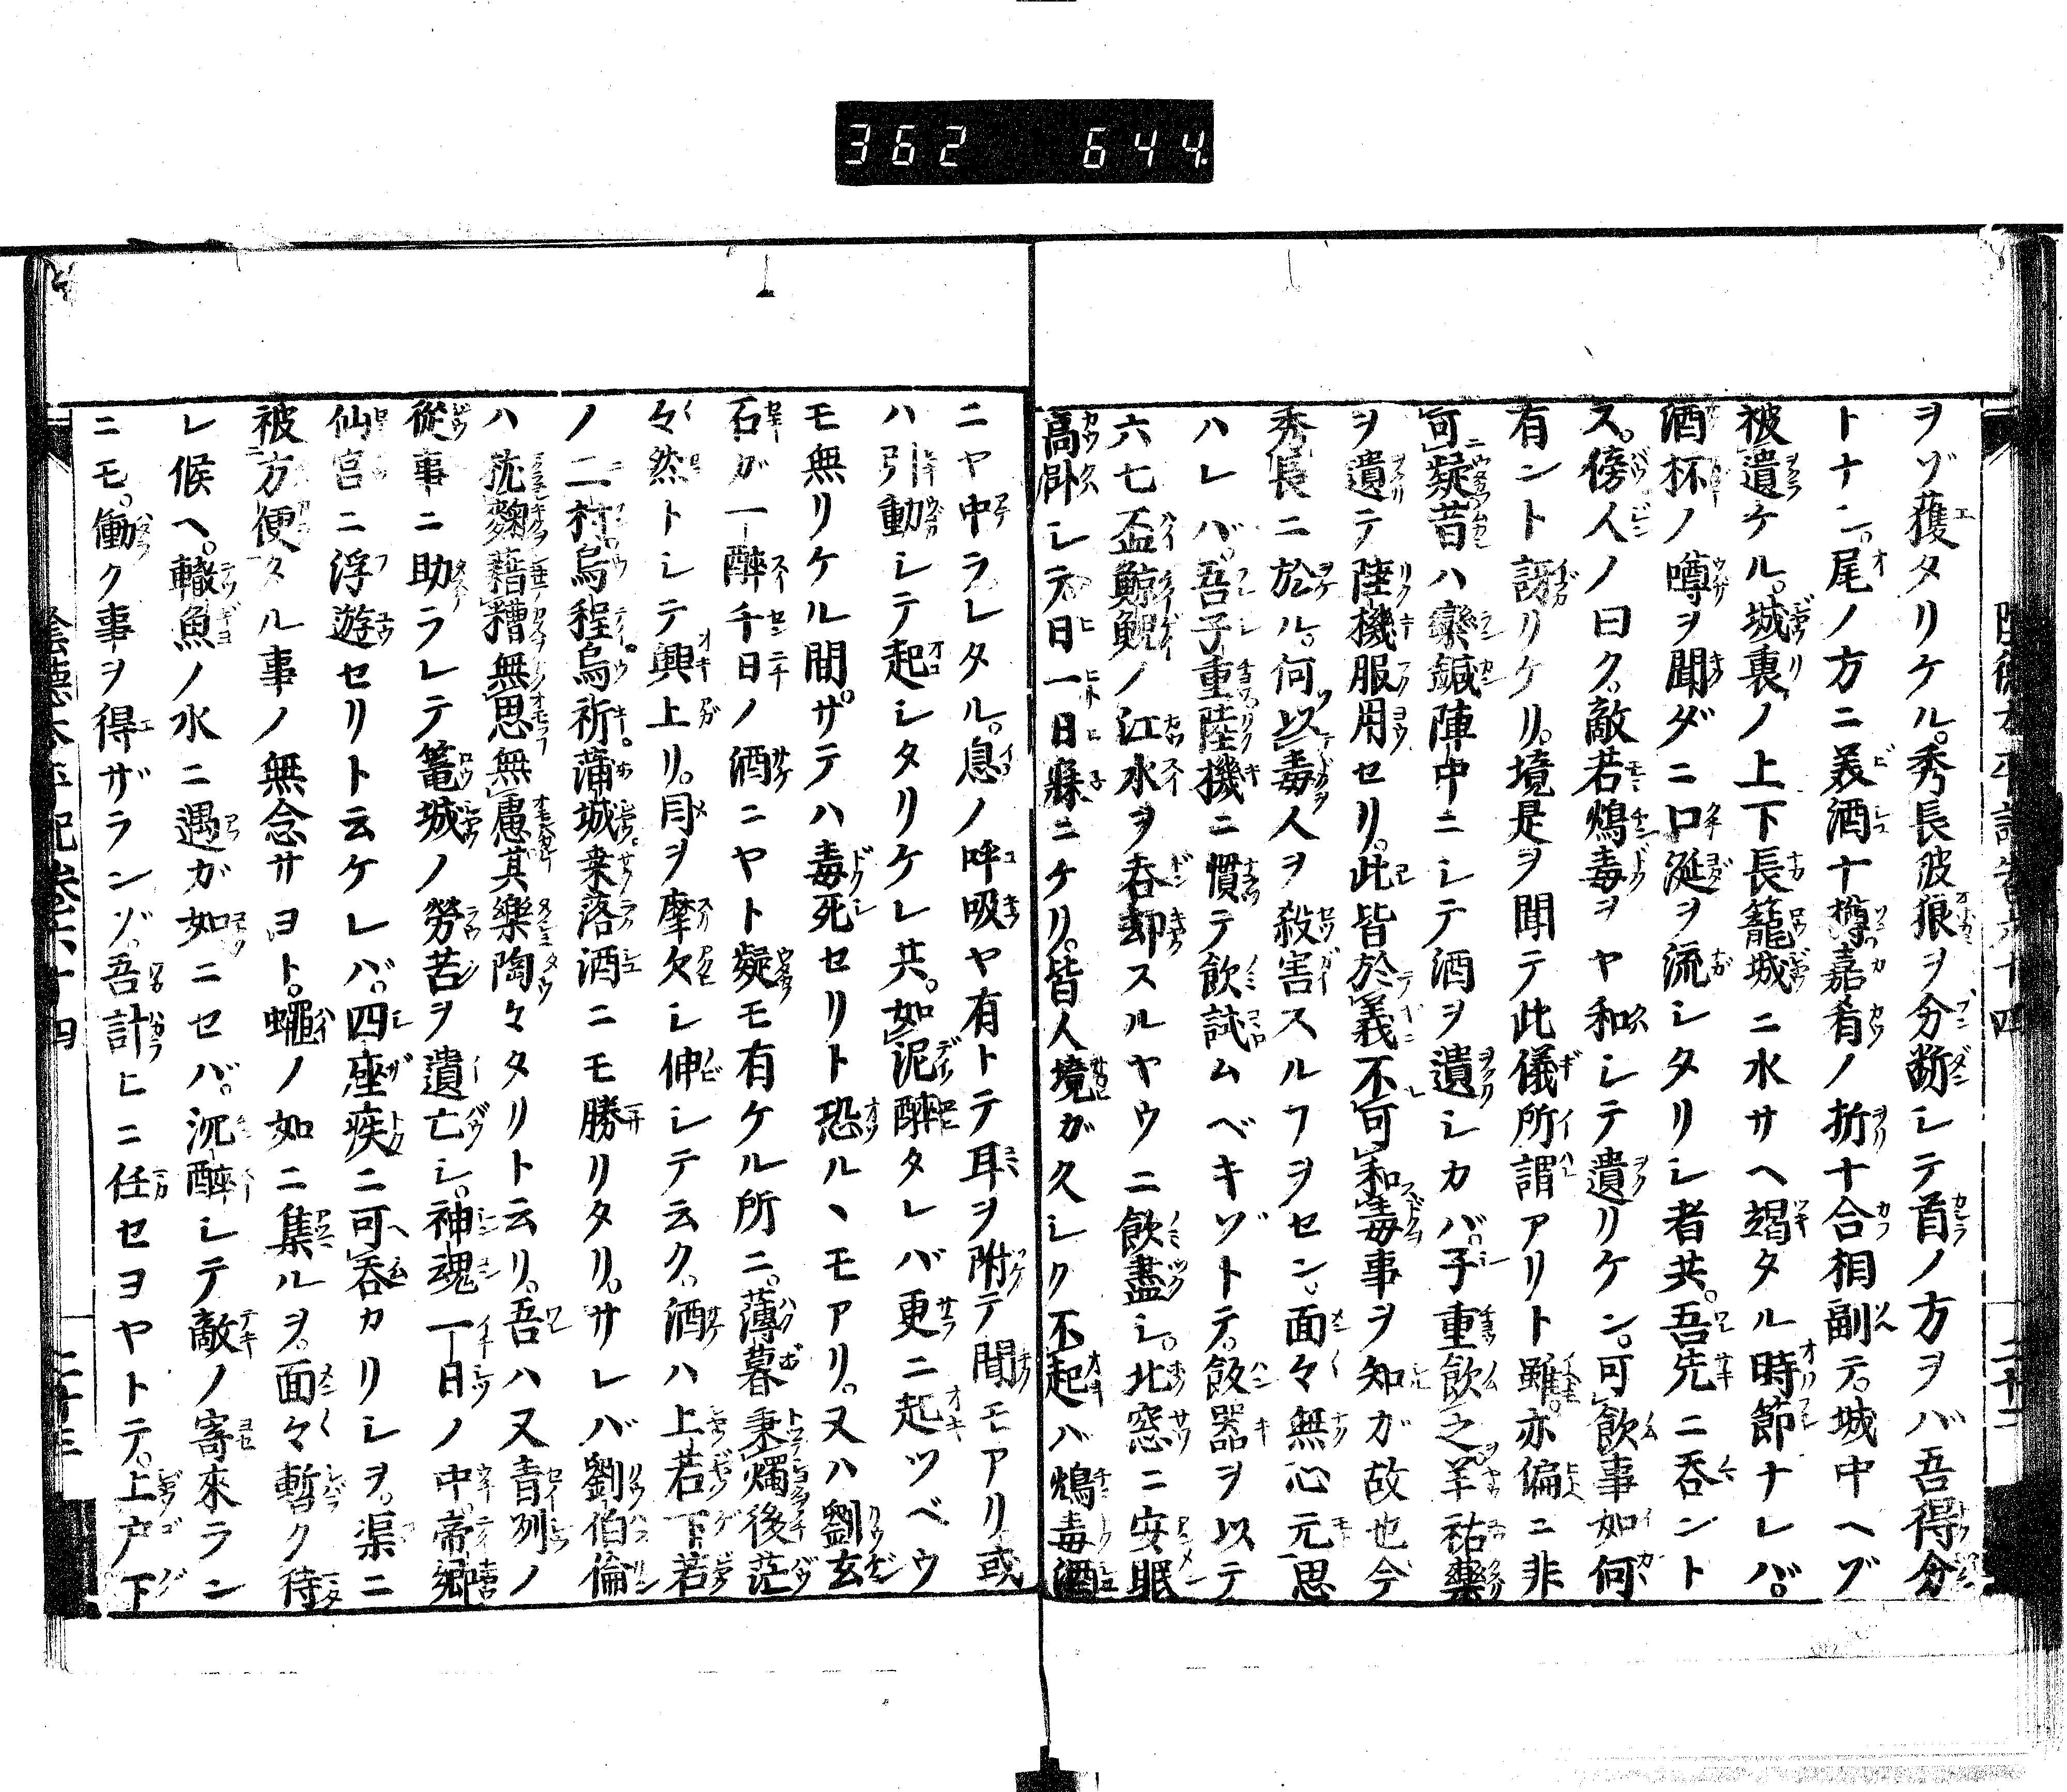 362 644
ヲゾ獲タリケル。秀長彼狼ヲ分断シテ首ノ方ヲバ吾得分
トナシ。尾ノ方ニ美酒十樽嘉肴ノ折十合相副テ。城中ヘゾ
被遺ケル。城裏ノ上下長籠城ニ水サヘ竭タル時節ナレバ。
酒杯ノ噂ヲ聞ダニ口涎ヲ流シタリシ者共。吾先ニ呑ント
ス。傍人ノ曰ク。敵若鴆毒ヲヤ和シテ遺リケン。可飲事如何
有ント訝リケリ。境是ヲ聞テ此儀所謂アリト雖。亦偏ニ非
可疑。昔ハ欒鍼陣中ニシテ酒ヲ遺シカバ。子重飲之。羊祜藥
ヲ遺テ陸機服用セリ。此皆於義不可和毒事ヲ知ガ故也。今
秀長ニ於ル。何以毒人ヲ殺害スルフヲセン。面々無心元思
ハレバ。吾子重陸機ニ慣テ飲試ムベキゾトテ。飯器ヲ以テ
六七盃鯨鯢ノ江水ヲ呑却スルヤウニ飲盡シ。北窓ニ安眠
高臥シテ日一日寐ニケリ。皆人境ガ久シク不起ハ鴆毒酒
ニヤ中ラレタル。息ノ呼吸ヤ有トテ耳ヲ附テ聞モアリ或
ハ引動シテ起シタリケレ共。如泥醉タレバ更ニ起ツベウ
モ無リケル間。サテハ毒死セリト恐ルヽモアリ。又ハ劉玄
石ガ一醉千日ノ酒ニヤト疑モ有ケル所ニ。薄暮秉燭後茫
々然トシテ興上リ。目ヲ摩欠シ伸シテ云ク。酒ハ上若下若
ノ二村。烏程。烏祈。蒲城。桒落酒ニモ勝リタリ。サレバ劉伯倫
ハ。枕麴藉糟無思無慮其樂陶々タリト云リ。吾ハ又青州ノ
從事ニ助ラレテ篭城ノ勞苦ヲ遺亡シ。神魂一日ノ中。帝郷
仙宮ニ浮遊セリト云ケレバ。四座疾ニ可呑カリシヲ。渠ニ
被方便タル事ノ無念サヨト。蠅ノ如ニ集ルヲ。面々暫ク待
レ候ヘ。轍魚ノ水ニ遇ガ如ニセバ。沉醉シテ敵ノ寄來ラン
ニモ。働ク事ヲ得ザランゾ。吾計ヒニ任セヨヤトテ。上戸下